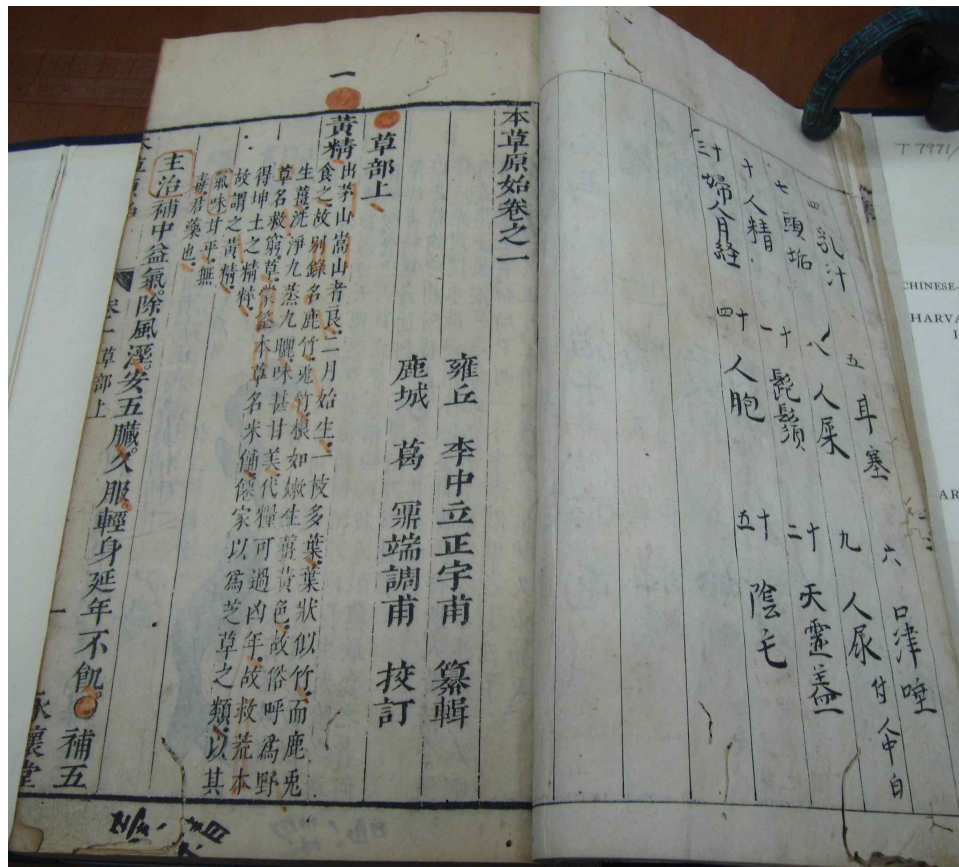 四 乳汁 五 耳塞 六 口津唾
七 頭垢 八 人屎 九 人尿 付人中白
十 人精 十一 髭鬚 十二 天靈蓋
十三 婦人月経 十四 人胞 十五 陰毛
本草原始卷之一
雍丘 李中立正宇甫 纂輯
鹿城 葛 鼎端調甫 挍訂
草部上
一
黃精
出茅山嵩山者良二月始生一枝多葉葉狀似竹而鹿兎
食之故別錄名鹿竹兎竹根如嫩生薑黃色故俗呼爲野
生薑洗淨九蒸九曬味甚甘美代糧可過凶年故救荒本
草名救窮草蒙筌本草名米餔僊家以爲芝草之類以其
得坤土之精粹
故謂之黃精
氣味甘平無
毒君藥也
主治補中益氣除風溼安五臟久服輕身延年不飢 補五
卷一 草部上 一 永懷堂
T 7971/
CHINESE-
HARVA